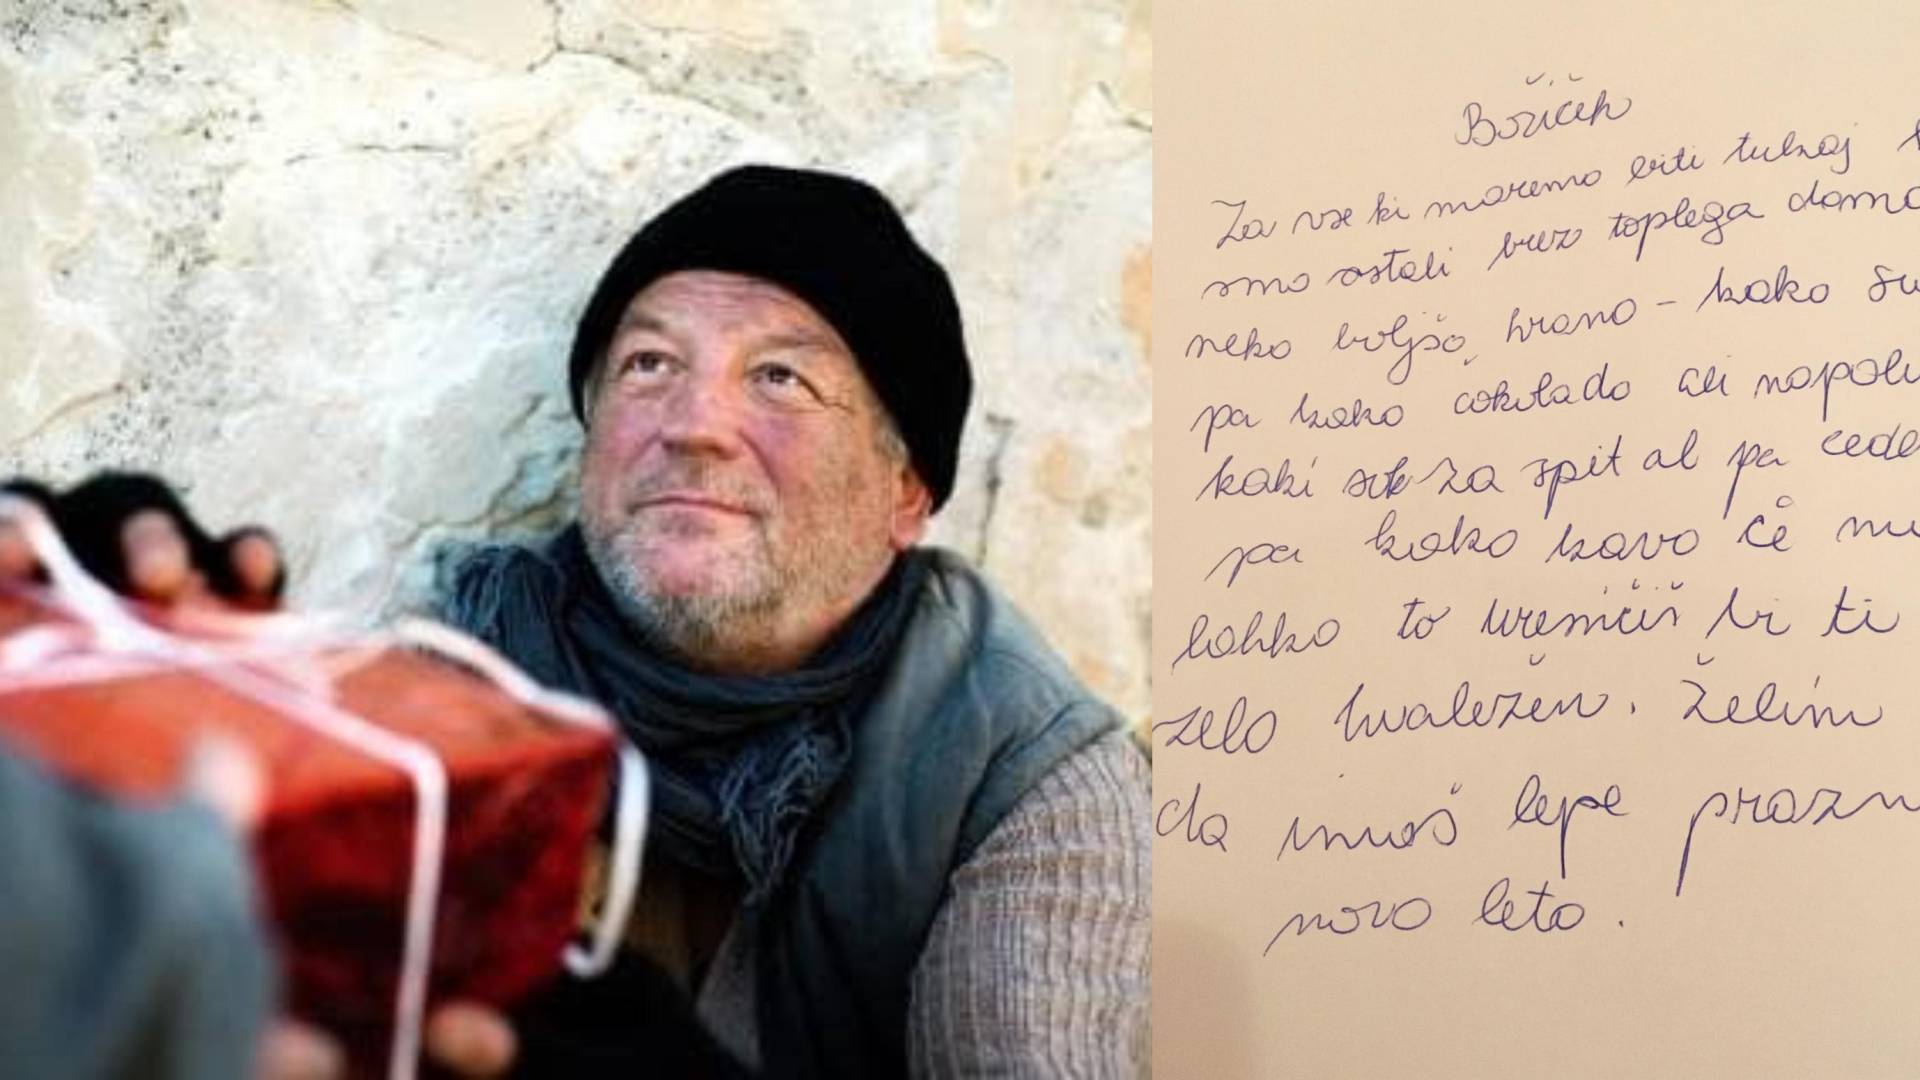 Božiček
Za vse ki moremo biti tukaj
smo ostali brez toplega
neko boljšo hrano - kako
pa kako čokolado ali
kaki sok za spit al pa
pa kako kavo če
lohko to uresničiš bi ti
zelo hvaležen. Želim
da imaš lepe
novo leto.